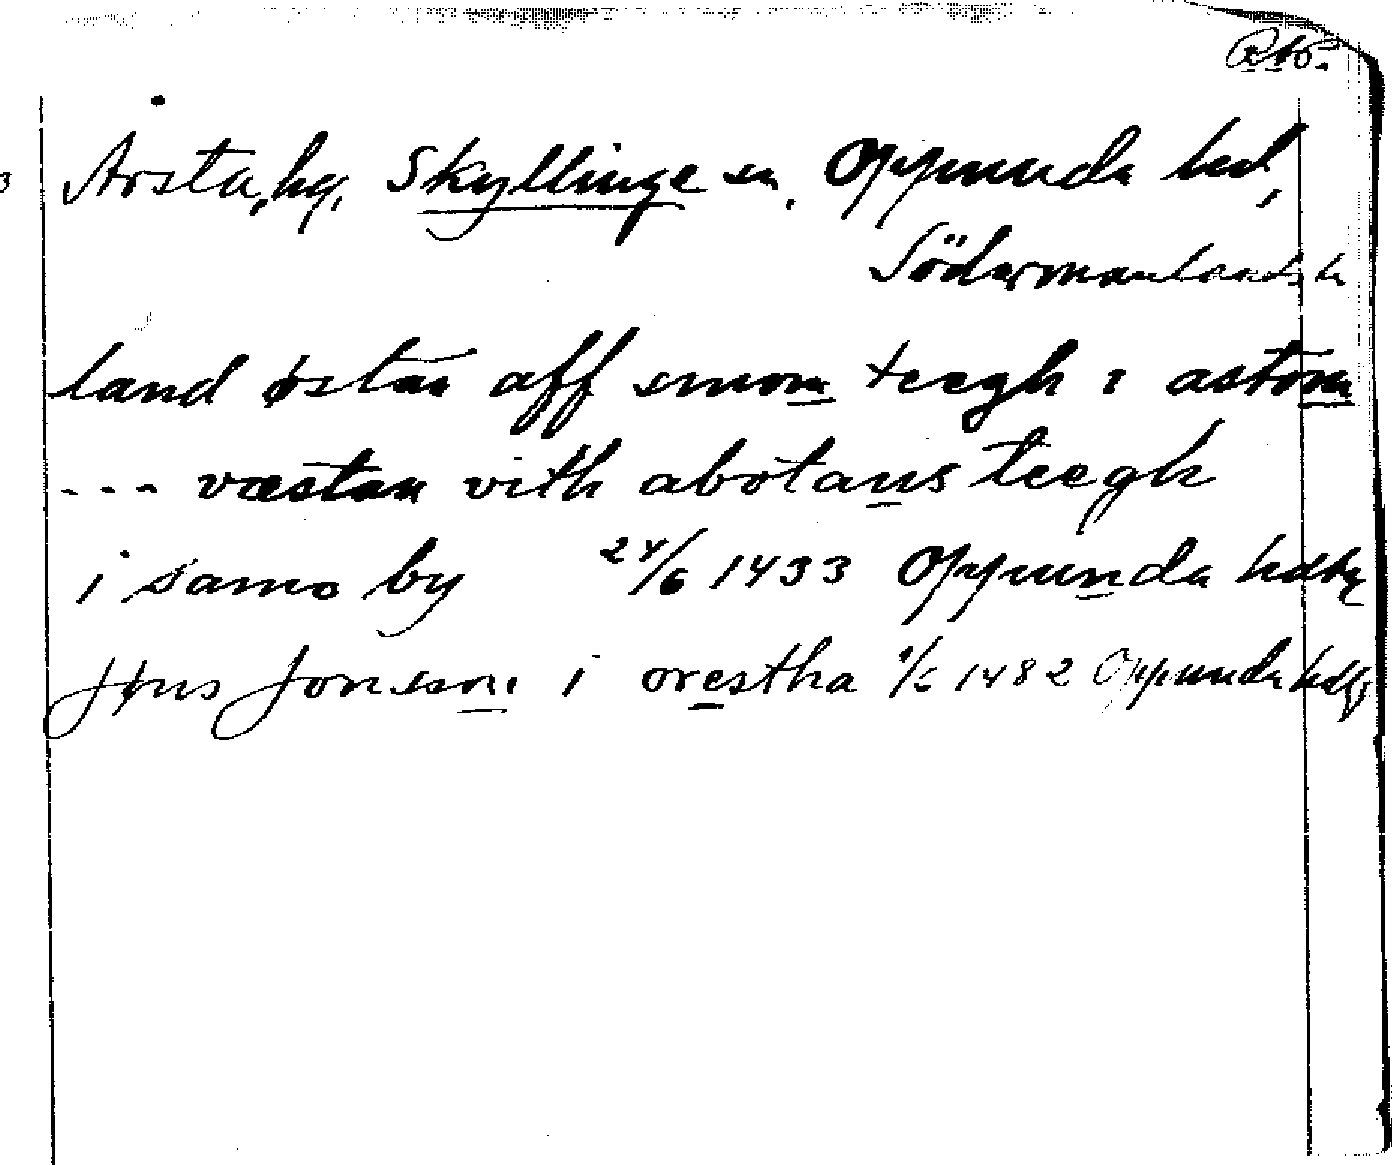 Rbr.
Årsta, hg, Skyllinge sn. Oppunda hd,
Södermanlands
land østan aff smom teegh i astom
--- væstan vith abotans teegh
i samo by 24/6 1433 Oppunda
Jøns Jonsson i orestha 1482 Oppunda